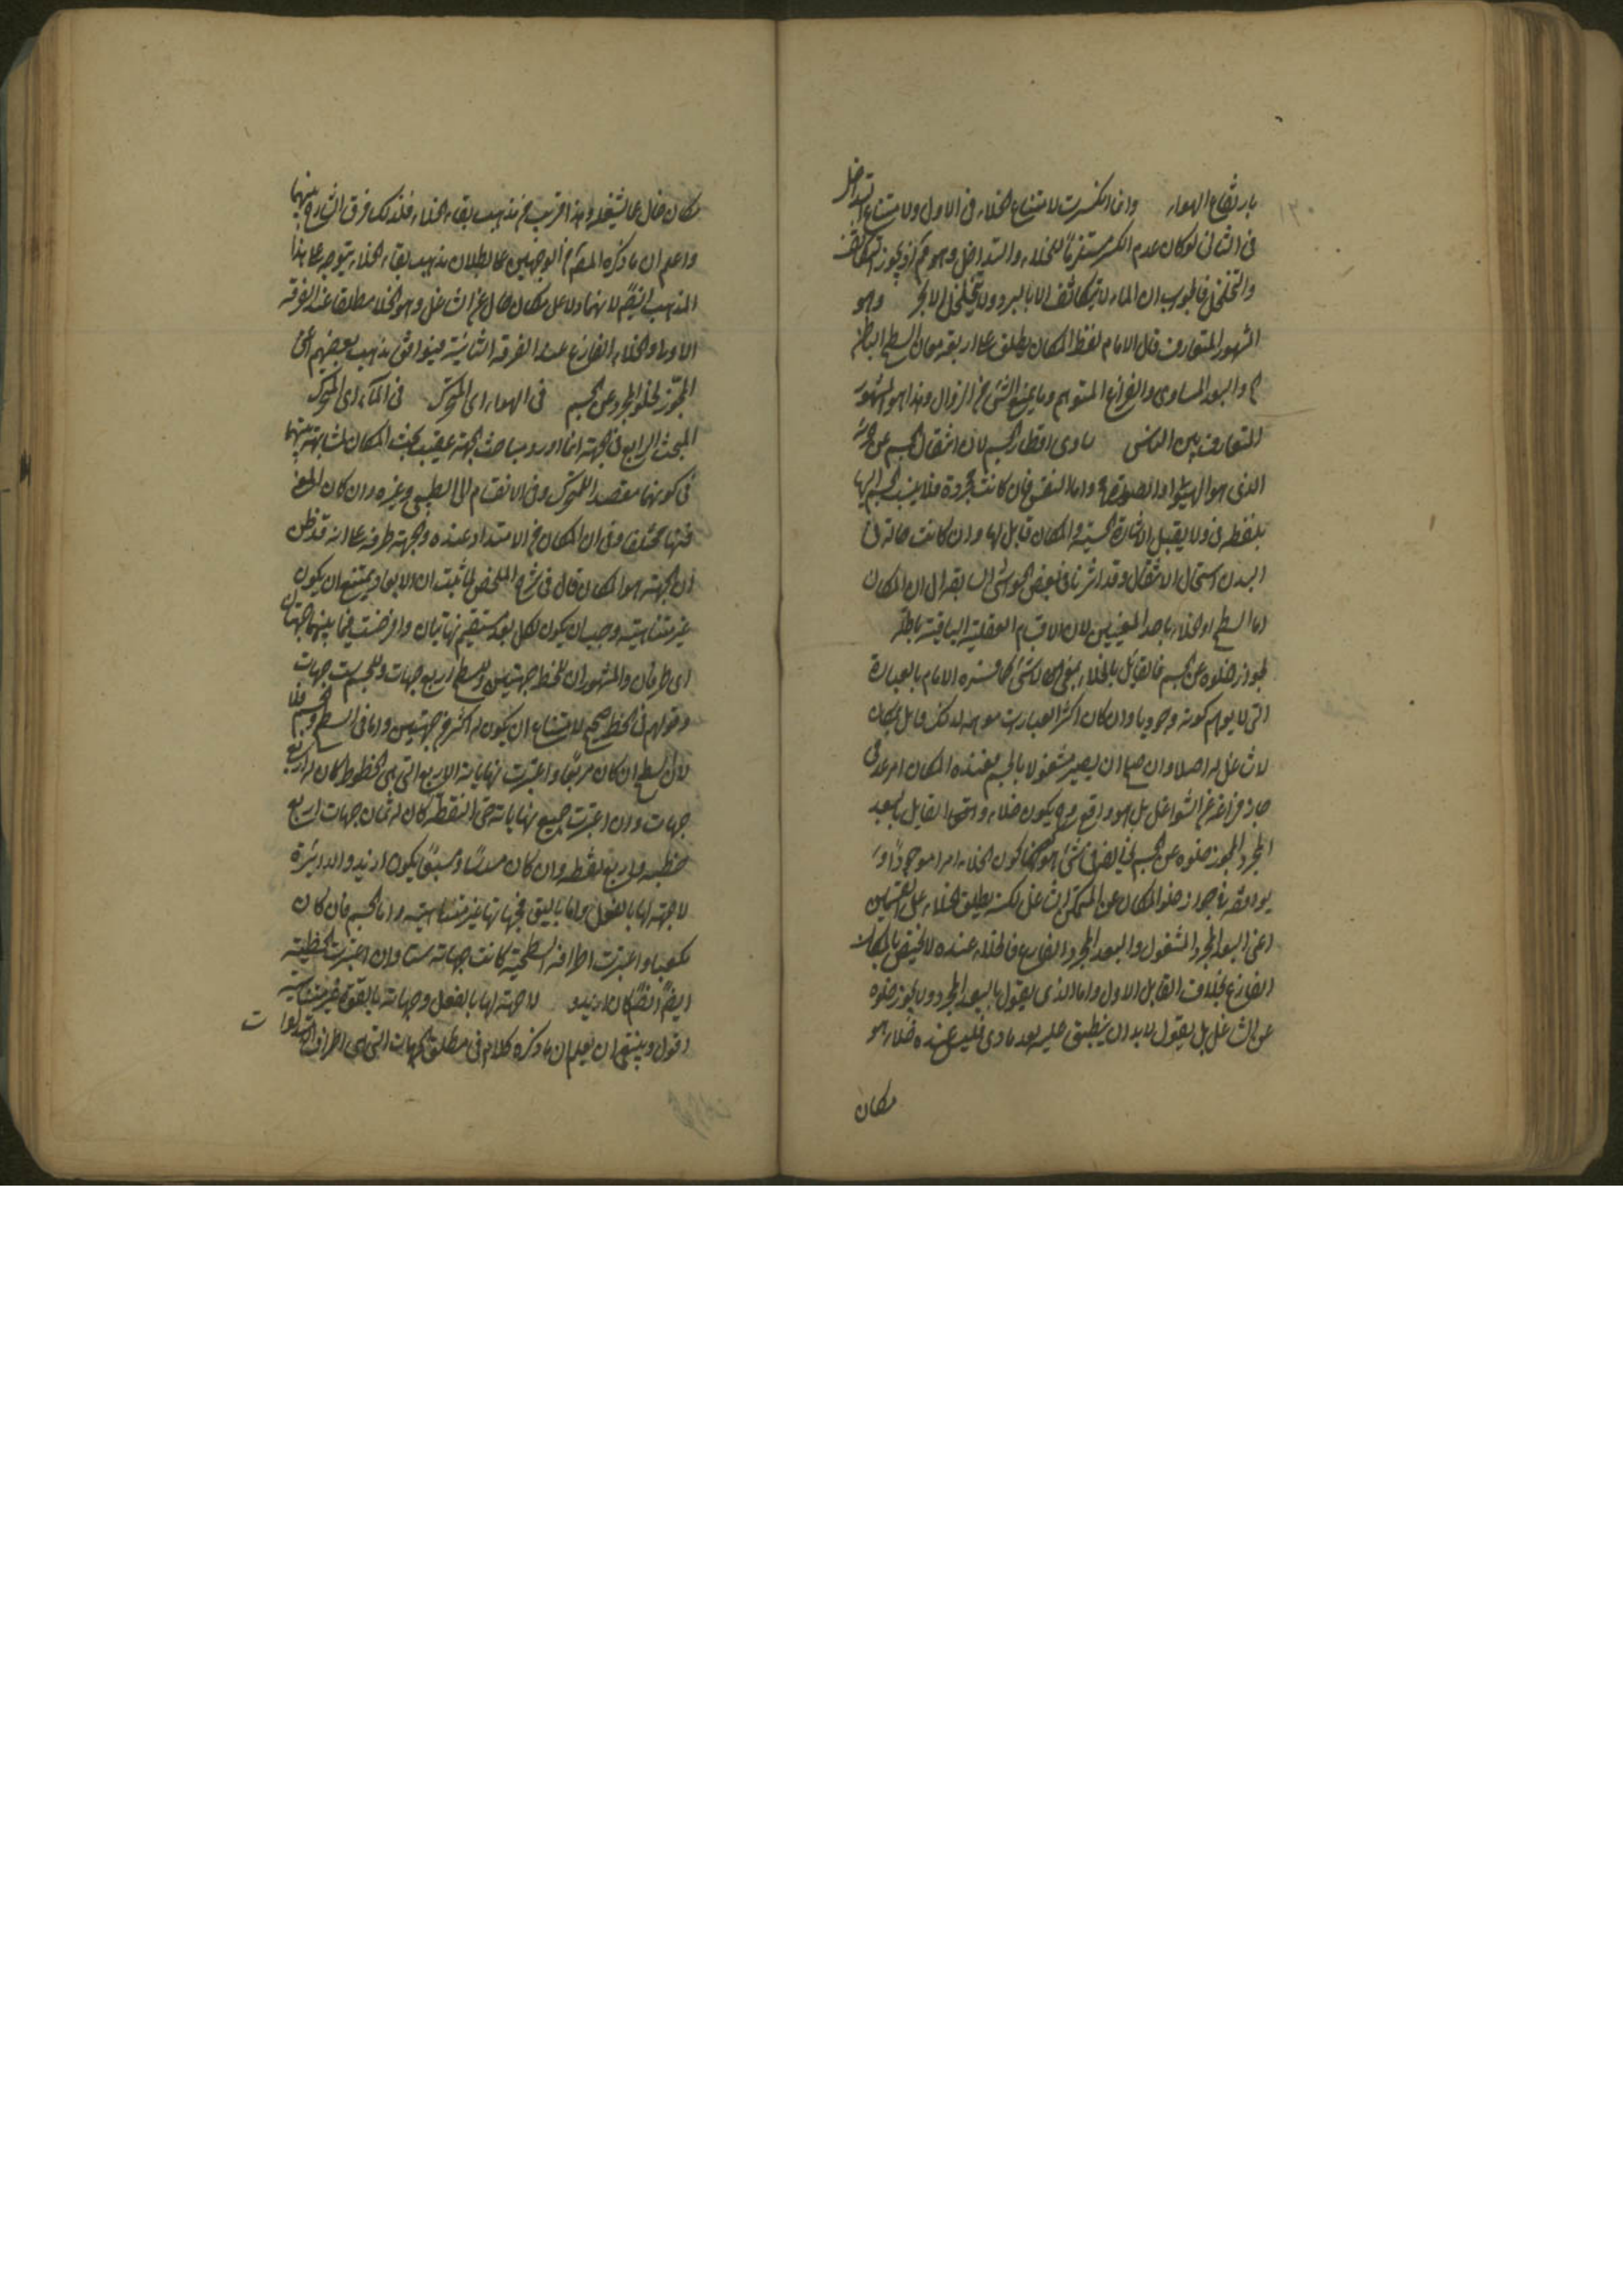 بارتفاع الهواء وانما انكسرت لامتناع الخلاء في الاول ولامتناع التداخل
في الثاني لو كان عدم الكسر مستلزما للخلاء والتداخل وهو مم لو يجوز التكاثف
والتخلخل فالجواب ان الماء لا يتكاثف الا بالبرد ولا يتخلخل الا بالحر وهو
المشهور المتعارف قال الامام لفظ المكان يطلق على اربعة معان السطح الباطن
والبعد المساوي والفراغ المتوهم وما يمنع الشئ من النزول وهذا هو المشهور
المتعارف بين الناس ساوى اقطار الجسم لان انتقال الجسم عن جزئه
الذي هو الهيولى او الصورة مح واما النفس فان كانت مجردة فلا ينسب الجسم اليها
بلفظة في ولا يقبل الاشارة الحسية والمكان قابل لها وان كانت حالة في
البدن استحال الانتقال وقد اشرنا في بعض الحواشي السابقة الى ان المكان
اما السطح او الخلاء باحد المعنيين لان الاقسام العقلية الباقية باطلة
لجواز خلوه عن الجسم فالقائل بالخلاء بمعنى لا شئ كما فسره الامام بالعبارة
التي لا يوهم كونه وجوديا وان كان اكثر العبارات موهمة لذلك قايل بمكان
لا شاغل له اصلا وان صح ان يصير مشغولا بالجسم فعنده المكان امر عدمي
جاز فراغه عن الشواغل بل هو واقع وح يكون خلاء واما القايل بالبعد
المجرد المجوز خلوه عن الجسم فيخالفه في شئ هو كون الخلاء امرا موجودا و
يوافقه في جواز خلو المكان عن المتمكن الشاغل لكنه يطلق الخلاء على القسمين
اعني البعد المجرد المشغول والبعد المجرد الفارغ فالخلاء عنده لا يختص بالمكان
الفارغ بخلاف القايل الاول واما الذي يقول بالبعد المجرد ولا يجوز خلوه
عن الشاغل بل يقول لا بد ان ينطبق عليه بعد مادي فليس عنده خلاء هو
مكان
مكان خال عما يشغله وهذا اقرب من مذهب بقاء الخلاء فلذلك فرق الشارح بينهما
واعلم ان ما ذكره المص من الوجهين على بطلان مذهب بقاء الخلاء يتوجه على هذا
المذهب ايضا لانهما دلا على مكان خال عن الشاغل وهو الخلاء مطلقا عند الفرقة
الاولى والخلاء الفارغ عند الفرقة الثانية فيوافق مذهب بعضهم اعني
المجوز لخلو المجرد عن الجسم في الهواء اي المتحرك في الماء اي المتحرك
المبحث الرابع في الجهة انما اورد مباحث الجهة عقيب بحث المكان لمشابهة بينهما
في كونهما مقصدا للمتحرك وفي الانقسام الى الطبيعي وغيره وان كان المعنى
فيهما مختلفا وفي ان المكان من الامتداد عنده والجهة طرفه على انه قد ظن
ان الجهة هو المكان قال في شرح الملخص لما ثبت ان الابعاد يمتنع ان يكون
غير متناهية وجب ان يكون لكل بعد مستقيم نهايتان واذا فرضت فيما بينهما جهتان
اي طرفان والمشهور ان للخط جهتين وللسطح اربع جهات وللجسم ست جهات
وقولهم في الخط صحيح لامتناع ان يكون له اكثر من جهتين واما في السطح والجسم فلا
لان السطح ان كان مربعا واعتبرت نهاياته الاربع التي هي الخطوط كان له اربع
جهات وان اعتبرت جميع نهاياته حتى النقطة كان له ثمان جهات اربع
خطية واربع نقطية وان كان مسدسا ومسبعا يكون ازيد والدائرة
لا جهة لها بالفعل واما بالقوة فجهاتها غير متناهية واما الجسم فان كان
مكعبا واعتبرت اطرافه السطحية كانت جهاته ستا وان اعتبرت الخطية
ايضا كان ازيد لا جهة لها بالفعل وجهاته بالقوة غير متناهية
اقول وينبغي ان يعلم ان ما ذكره كلام في مطلق الجهات التي هي اطراف الامتدادات